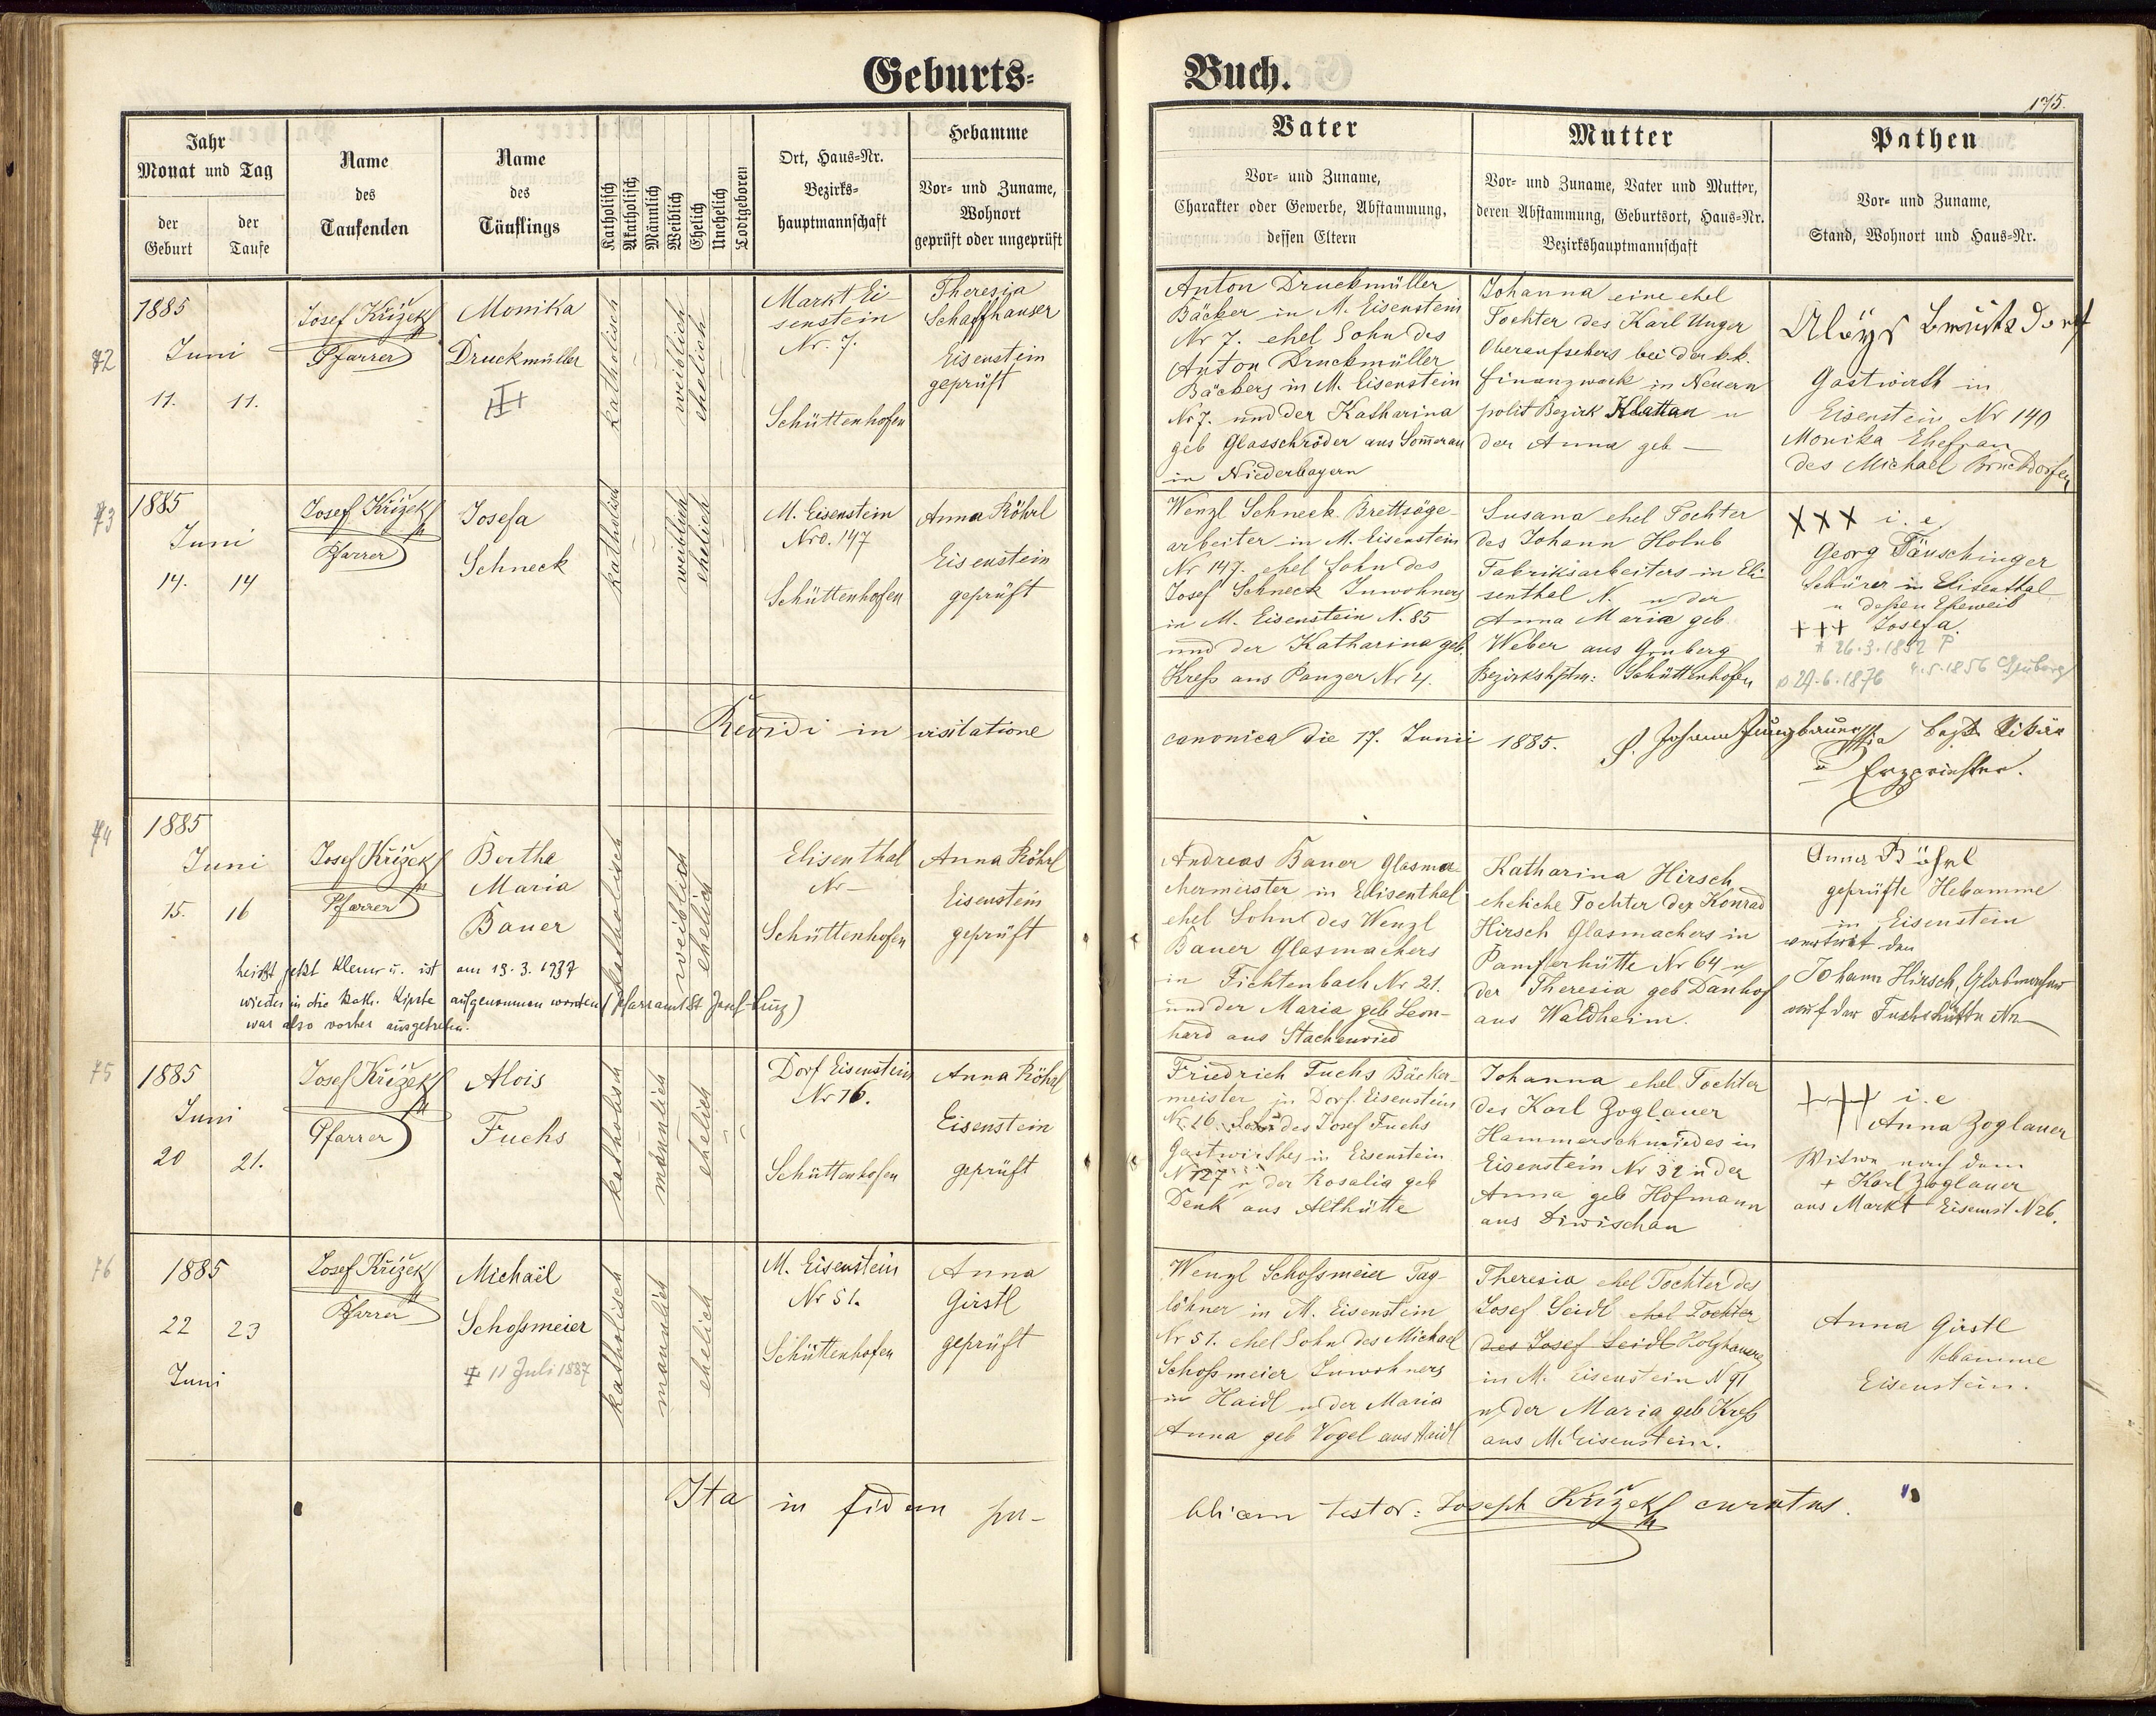 Geburts-
Buch.
175.
Jahr
Monat und Tag
der Geburt
der Taufe
Name
des
Taufenden
Name
des
Täuflings
Katholisch
Akatholisch
Männlich
Weiblich
Ehelich
Unehelich
Todtgeboren
Ort, Haus-Nr.
Bezirks-
hauptmannschaft
Hebamme
Vor- und Zuname,
Wohnort
geprüft oder ungeprüft
Vater
Vor- und Zuname,
Charakter oder Gewerbe, Abstammung,
dessen Eltern
Mutter
Vor- und Zuname, Vater und Mutter,
deren Abstammung, Geburtsort, Haus-Nr.
Bezirkshauptmannschaft
Pathen
Vor- und Zuname,
Stand, Wohnort und Haus-Nr.
72
1885
Juni
11. 11.
Josef Křížek
Pfarrer
Monika
Druckmüller
katholisch
weiblich
ehelich
Markt Ei-
senstein
Nr. 7.
Schüttenhofen
Theresia
Schaffhauser
Eisenstein
geprüft
Anton Druckmüller
Bäcker in M. Eisenstein
Nr 7. ehel Sohn des
Anton Druckmüller
Bäckers in M. Eisenstein
Nr 7. und der Katharina
geb Glasschröder aus Som̄erau
in Niederbayern
Johanna eine ehel
Tochter des Karl Unger
Oberaufsehers bei der k.k.
Finanzwache in Neuern
polit Bezirk Klattau u
der Anna geb —
Aloys
Gastwirth in
Eisenstein Nr 140
Monika Ehefrau
des Michael Bruckdorfer
73
1885
Juni
14. 14
Josef Křížek
Pfarrer
Josefa
Schneck
katholisch
weiblich
ehelich
M. Eisenstein
Nro. 147
Schüttenhofen
Anna Röhrl
Eisenstein
geprüft
Wenzl Schneck Brettsäge-
arbeiter in M. Eisenstein
Nr 147. ehel Sohn des
Josef Schneck Inwohners
in M. Eisenstein N. 85
und der Katharina geb.
Kreß aus Panzer Nr 4.
Susana ehel Tochter
des Johann Holub
Fabriksarbeiters in Eli-
senthal N. u der
Anna Maria geb
Weber aus Gruberg
Bezirkshptm: Schüttenhofen
XXX i. e.
Georg Täuschinger
Schürer in Elisenthal
u deßen Eheweib
+++ Josefa
* 26.3.1852 P
4.5.1856 Gruberg
29.6.1876
Revidi in visitatione
canonica die 17. Junii 1885. P. Johann Jungbauer
bischf. Vikär
u Erzpriester.
74
1885
Juni
15. 16
Josef Křížek
Pfarrer
Bertha
Maria
Bauer
katholisch
weiblich
ehelich
Elisenthal
Nr —
Schüttenhofen
Anna Röhrl
Eisenstein
geprüft
heißt jetzt Klemr u. ist am 19.3.1937
wieder in die kath. Kirche aufgenommen worden (Pfarramt St. Josef-Linz)
war also vorher ausgetreten.
Andreas Bauer Glasma-
chermeister in Elisenthal
ehel Sohn des Wenzl
Bauer Glasmachers
in Fichtenbach Nr 21.
und der Maria geb Leon-
hard aus Stachenried
Katharina Hirsch
eheliche Tochter des Konrad
Hirsch Glasmachers in
Pampferhütte Nr 64 u
der Theresia geb Danhof
aus Waldheim.
Anna Röhrl
geprüfte Hebamme
in Eisenstein
vertrit den
Johann Hirsch, Glasmacher
auf der Fuchshütte Nr —
75
1885
Juni
20 21.
Josef Křížek
Pfarrer
Alois
Fuchs
katholisch
männlich
ehelich
Dorf Eisenstein
Nr 16.
Schüttenhofen
Anna Röhrl
Eisenstein
geprüft
Friedrich Fuchs Bäcker-
meister in Dorf. Eisenstein
Nr 16 Sohn des Josef Fuchs
Gastwirthes in Eisenstein
N 127 u der Rosalia geb
Denk aus Althütte
Johanna ehel Tochter
des Karl Zoglauer
Hammerschmiedes in
Eisenstein Nr 32 u der
Anna geb Hofmann
aus Diwischau
+++ i. e
Anna Zoglauer
Witwe nach dem
+ Karl Zoglauer
aus Markt Eisenst N 26.
76
1885
22 23
Juni
Josef Křížek
Pfarrer
Michaël
Schoßmeier
‡ 11 Juli 1887
katholisch
männlich
ehelich
M. Eisenstein
Nr 51.
Schüttenhofen
Anna
Girstl
geprüft
Wenzl Schoßmeier Tag-
löhner in M. Eisenstein
Nr 51. ehel Sohn des Michael
Schoßmeier Inwohners
in Haidl u der Maria
Anna geb Vogel aus Haidl
Theresia ehel Tochter des
Josef Seidl ehel Tochter
des Josef Seidl Holzhauers
in M. Eisenstein N 91
u der Maria geb Kreß
aus M. Eisenstein.
Anna Girstl
Hebamme
Eisenstein.
Ita in fidem pu-
blicam testor: Joseph Křížek curatus.